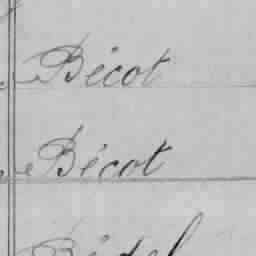 Bécot
Bécot